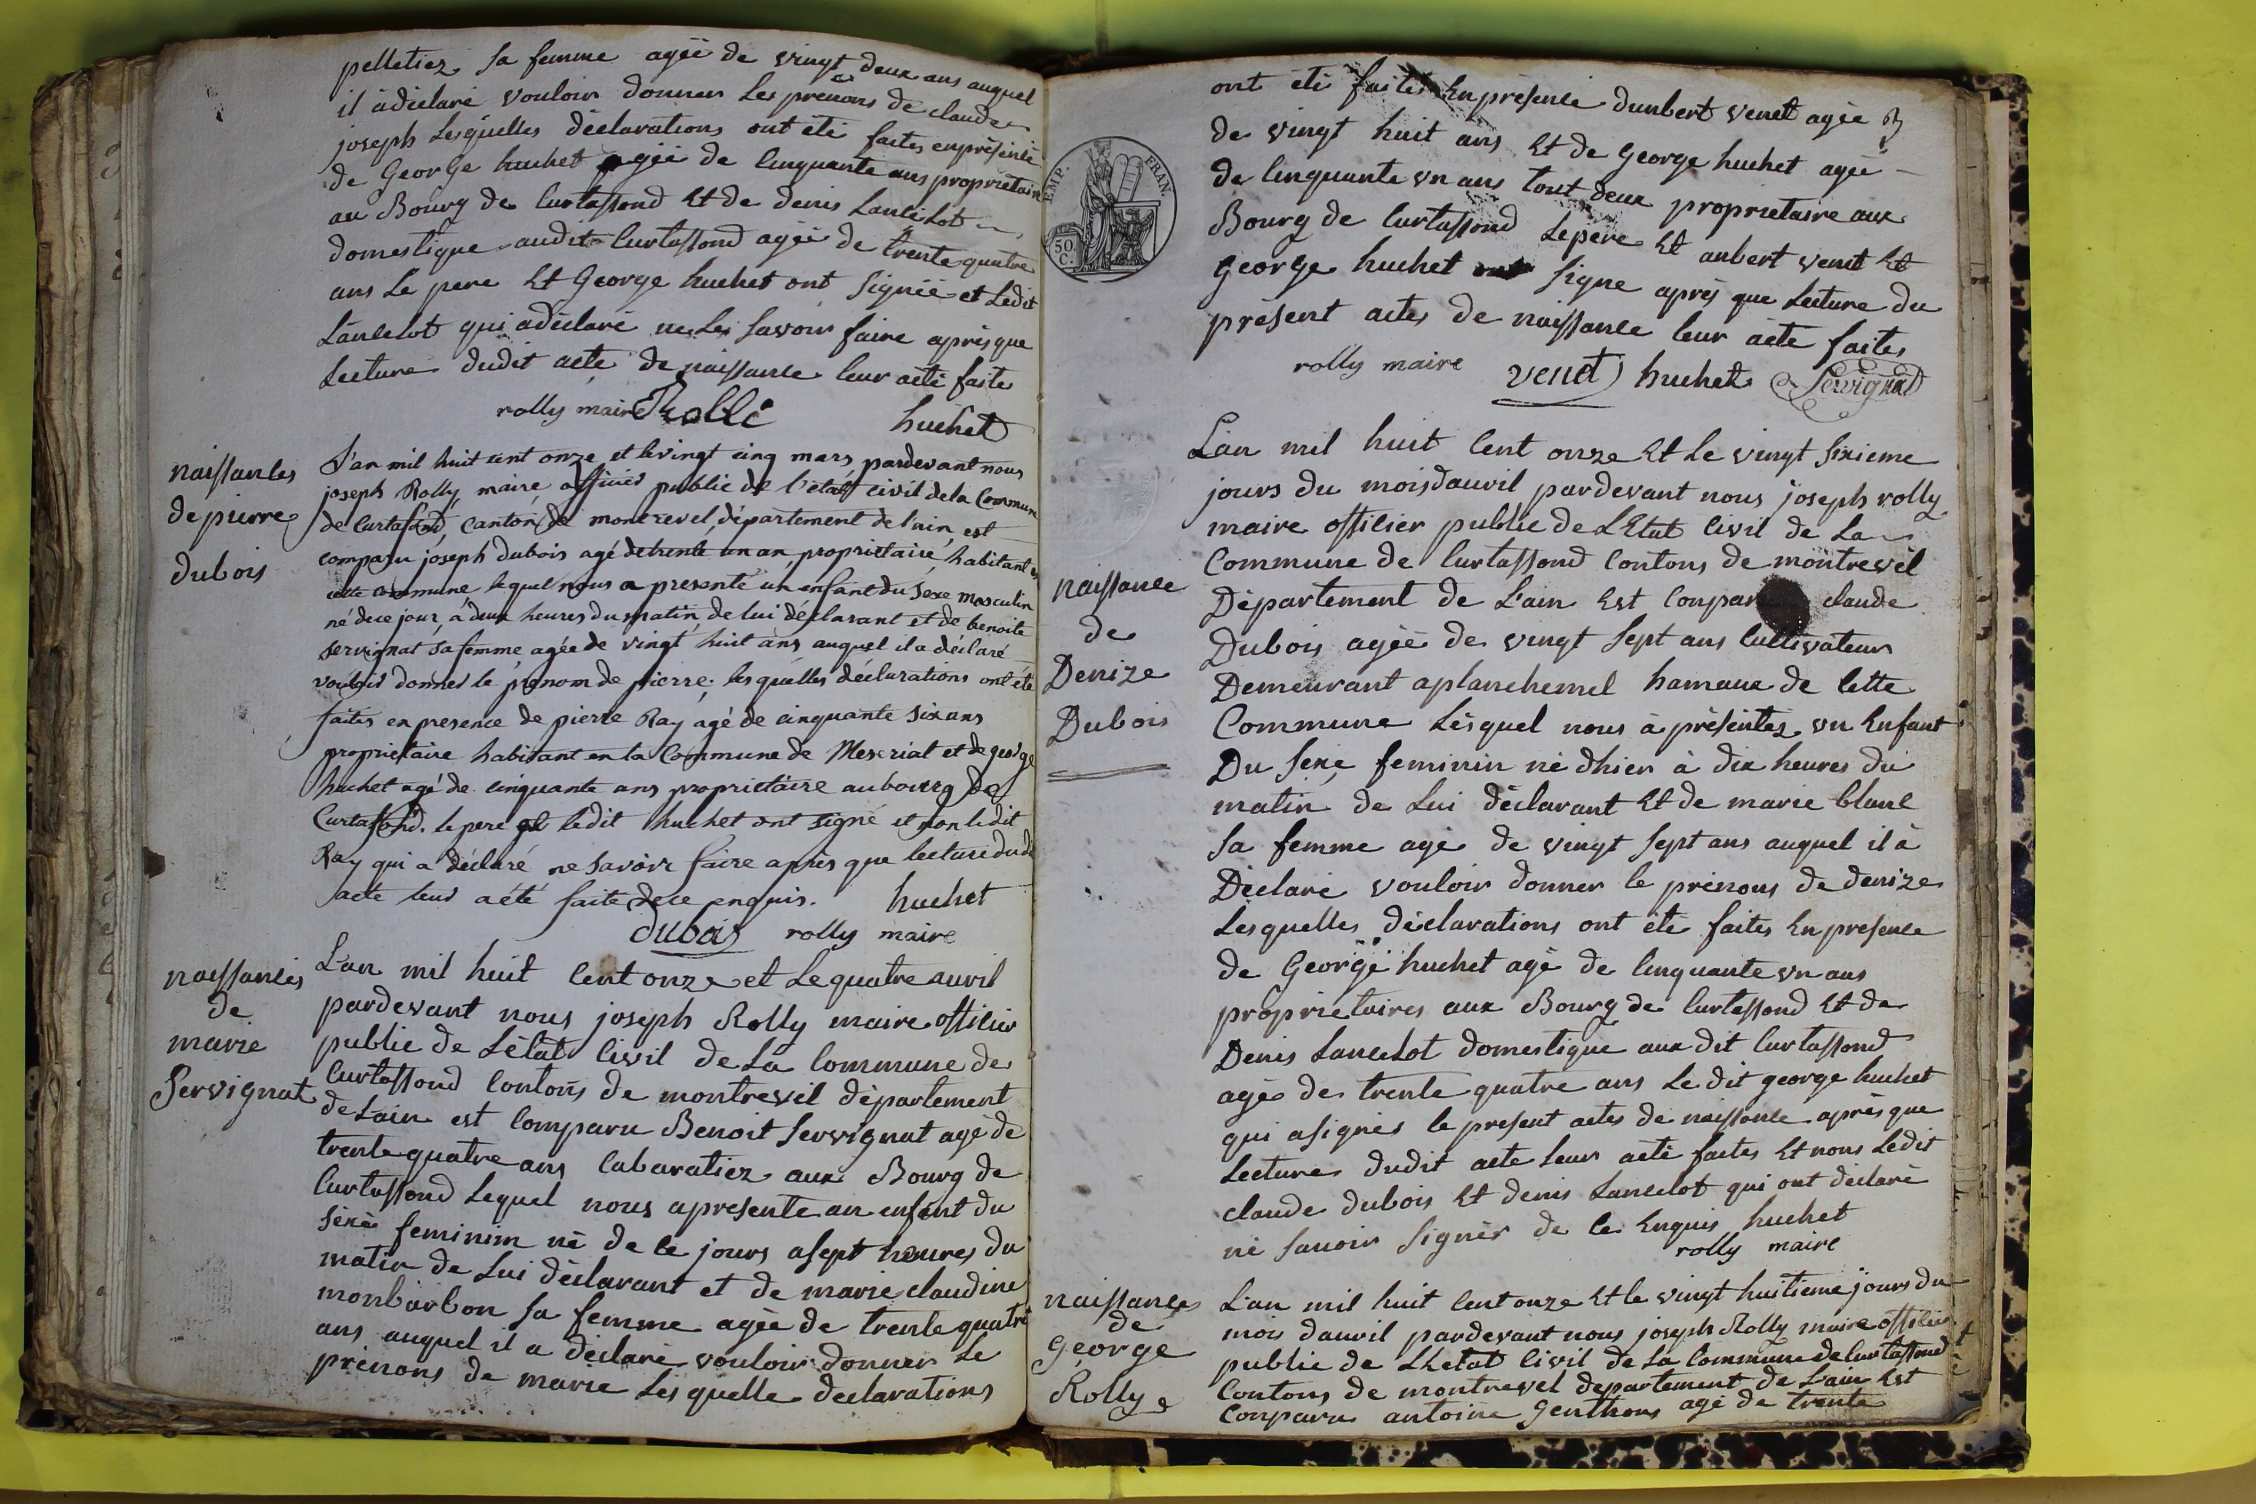 pelletiez sa femme agée de vingt deux ans auquel
il à déclaré vouloir donner les prenons de claude
joseph lesquelles déclarations ont été faites enprésence
de George huchet agéé de cinquante ans propriétaire
au Bourg de Curtassond Et de denis Lancelot
domestique audit Curtassond agéé de trente quatre
ans Le pere Et George huchet ont signéé et Ledit
Lancelot qui adéclaré ne Le savoir faire aprèsque
Lecture dudit acte de naissance leur aété faite
rolly maire Rollé huchet
naissances
de pierre
dubois
L'an mil huit cent onze et levingt cinq mars pardevant nous
joseph Rolly maire officier public de l'etat civil dela Commune
de Curtafond, canton de montrevel, département de l'ain, est
comparu joseph dubois agé detrente un an, proprietaire, habitant en
cette commune lequel nous a presenté un enfant du sexe masculin
né dece jour, à deux heures du matin, de lui déclarant et de benoite
servignat sa femme, agée de vingt huit ans auquel il a déclaré
vouloir donner le prénom de pierre; lesquelles déclarations ont été
faites en presence de pierre Ray agé de cinquante six ans
proprietaire habitant en la Commune de Meseriat et de george
huchet agé de cinquante ans propriétaire au bourg de
Curtafond. le pere et ledit huchet ont signé et non ledit
Ray qui a déclaré ne savoir faire après que lecture du dit
acte leur a été faite de ce enquis. huchet
dubois rolly maire
naissances
de
marie
Servignat
L'an mil huit cent onze et Le quatre auril
pardevant nous joseph Rolly maire officier
public de L'état Civil de La Commune de
Curtassond Contons de montrevel département
de Lain est Comparu Benoit Servignat agé de
trente quatre ans Cabaratiez aux Bourg de
Curtassond Lequel nous apresente un enfent du
séxè feminim né de ce jours asept heures du
matin de Lui déclarant et de marie claudine
monbarbon sa femme agée de trente quatre
ans auquel il a déclaré vouloir donner Le
prénons de marie Les quelle declarations
ont été faites Enprésence dunbert venet agée
de vingt huit ans Et de George huchet agéé
de Cinquante vn ans tout deux proprietaire aux
Bourg de Curtassond Lepere Et anbert venet Et
George huchet signe après que Lecture du
présent actes de naissance leur aété faites
rolly maire venet huchet Servignat
EMP. FRAN.
50
C.
naissance
de
Denize
Dubois
L'an mil huit Cent onze Et Le vingt sixieme
jours du moisdauril pardevant nous joseph rolly
maire officier public de LEtat Civil de La
Commune de Curtassond Contons de montrevel
Département de L'ain Est Conparu claude
Dubois agéé de vingt sept ans Cultivateur
Demeurant aplanchemel hamaux de Cette
Commune Lèsquel nous à présentez vn Enfant
Du sexe feminin né dhier à dix heures du
matin de Lui déclarant Et de marie blanc
sa femme agé de vingt sept ans auquel il à
Déclaré vouloir donner le prénons de denize
Lesquelles déclarations ont été faites En presence
de George huchet agé de Cinquante vn ans
propriétaires aux Bourg de Curtassond Et de
Denis Lancelot domestique aux dit Curtassond
agé de trente quatre ans Le dit george huchet
qui asignés le present actes de naissance après que
Lecture dudit acte Leur aété faites Et nons Ledit
claude dubois Et denis Lancelot qui ont déclaré
né sauoir signér de Ce Enquis huchet
rolly maire
naissances
de
George
Rolly
L'an mil huit Cent onze Et le vingt huitieme jours du
mois dauril pardevant nous joseph Rolly maire officier
public de LEtat Civil de La Commune de Curtassond
Contons de montrevel département de L'ain Est
Conparu antoine Genthons agé de trente